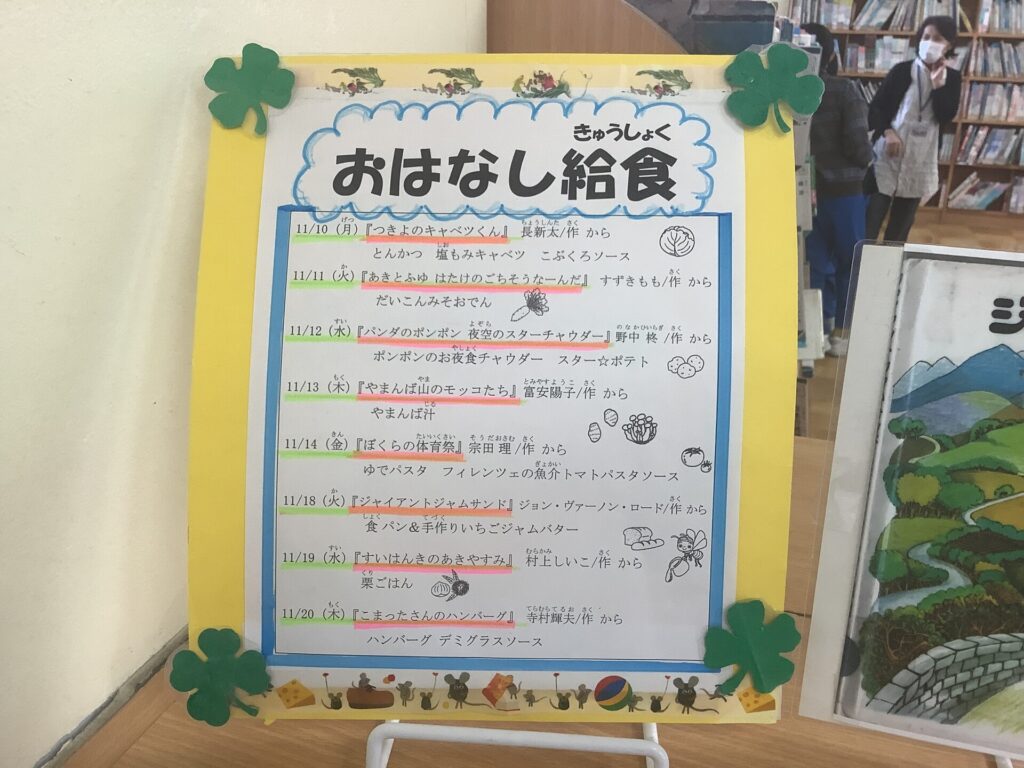 きゅうしょく
おはなし給食
11/10 (月)『つきよのキャベツくん』 長新太/作 から
とんかつ 塩もみキャベツ こぶくろソース
11/11 (火)『あきとふゆ はたけのごちそうなーんだ』 すずきもも/作 から
だいこんみそおでん
11/12 (水)『パンダのポンポン 夜空のスターチャウダー』 野中 柊/作 から
ポンポンのお夜食チャウダー スター☆ポテト
11/13 (木)『やまんば山のモッコたち』 富安陽子/作 から
やまんば汁
11/14 (金)『ぼくらの体育祭』 宗田 理/作 から
ゆでパスタ フィレンツェの魚介トマトパスタソース
11/18 (火)『ジャイアントジャムサンド』 ジョン・ヴァーノン・ロード/作 から
食パン&手作りいちごジャムバター
11/19 (水)『すいはんきのあきやすみ』 村上しいこ/作 から
栗ごはん
11/20 (木)『こまったさんのハンバーグ』 寺村輝夫/作 から
ハンバーグ デミグラスソース